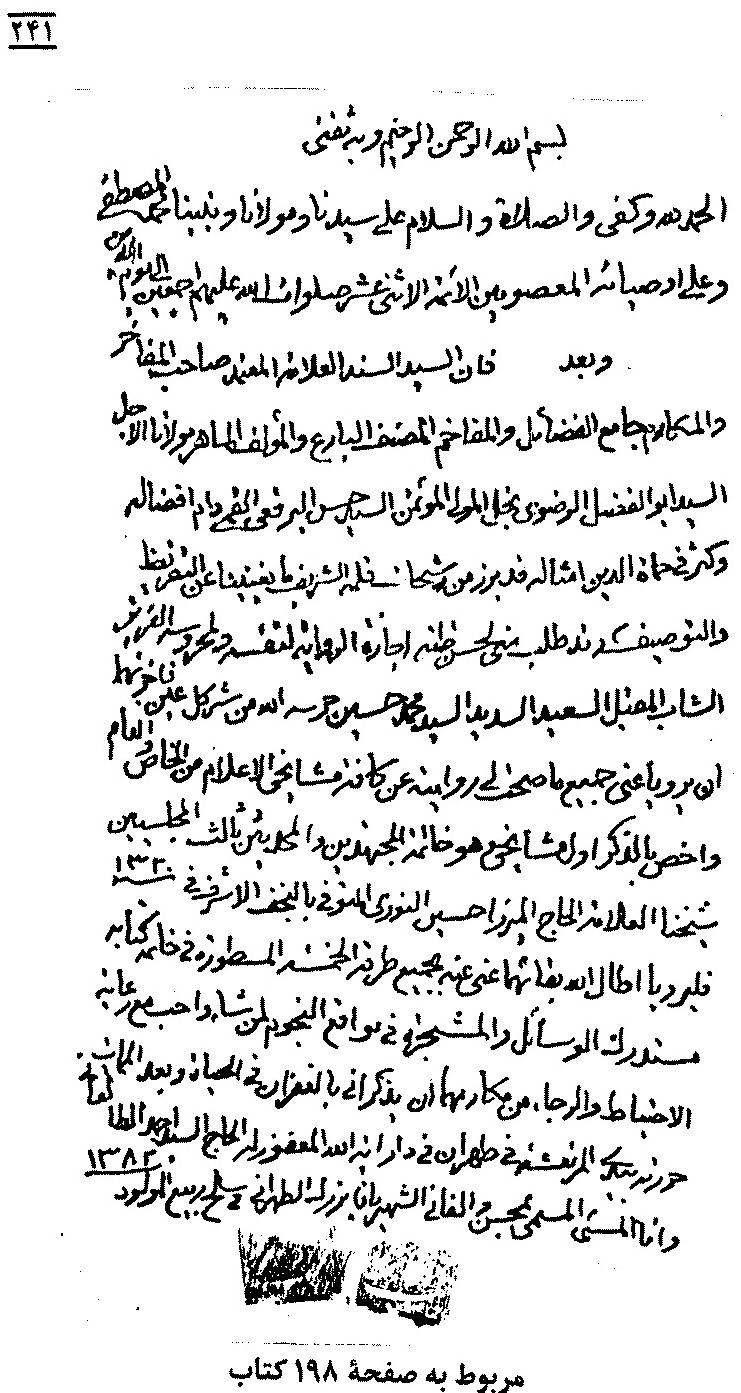 ۲۴۱
بسم الله الرحمن الرحیم و به ثقتی
الحمد لله و کفی والصلاة والسلام علی سیدنا و مولانا و نبینا محمد المصطفی
وعلی اوصیائه المعصومین الائمة الاثنی عشر صلوات الله علیهم اجمعین الی یوم الدین
وبعد فان السید السند العلامة المعتمد صاحب المفاخر
والمکارم جامع الفضائل والمفاخم المصنف البارع والمؤلف الماهر مولانا الاجل
السید ابو الفضل الرضوی نجل المولی المؤتمن السید حسن البرقعی القمی دام افضاله
وکثر فی حماة الدین امثاله قد برز من رشحات قلمه الشریف ما یغنینا عن التقریظ
والتوصیف قد طلب منی لحسن ظنه اجازة الروایة لنفسه ولمحروسه العزیز
الشاب المقبل السعید السدید السید محمد حسین حرسه الله من شر کل عین فاجزتهما
ان یرویا عنی جمیع ما صحت لی روایته عن کافة مشایخی الاعلام من الخاص والعام
واخص بالذکر اول مشایخی وهو خاتمة المجتهدین والمحدثین ثالث المجلسیین
شیخنا العلامة الحاج المیرزا حسین النوری المتوفی بالنجف الاشرف فی سنة ۱۳۲۰
فلیرویا اطال الله بقائهما عنی عنه بجمیع طرقه الخمسة المسطورة فی خاتمة کتابه
مستدرک الوسائل والمشجرة فی مواقع النجوم لمن شاء واحب مع رعایة
الاحتیاط والرجاء من مکارمهما ان یذکرانی بالغفران فی الحیاة وبعد الممات
حررته بیدی المرتعشة فی طهران فی دار ابنة الله المغفور له الحاج السید احمد الطالقانی
وانا المسیء المسمی بمحسن والفانی الشهیر باقا بزرك الطهرانی فی سلخ ربیع المولود ۱۳۸۲
مربوط به صفحهٔ ۱۹۸ کتاب